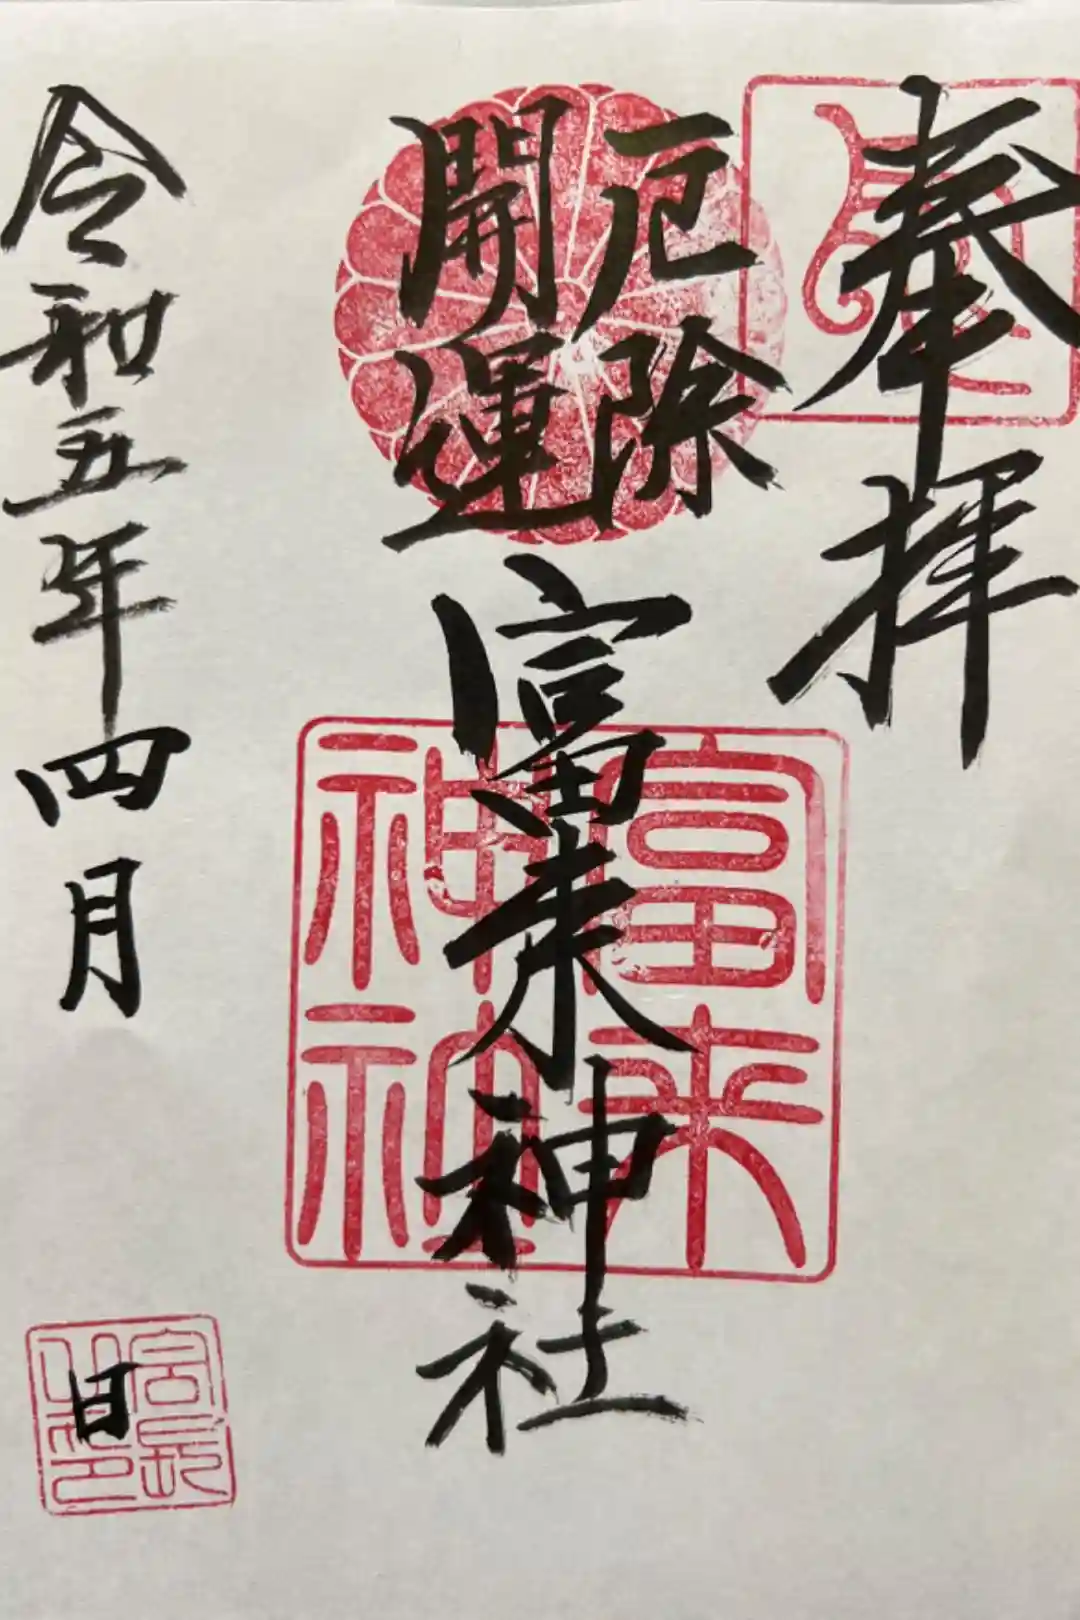 奉拝
厄除
開運
富来神社
富来
神社
令和五年四月
日
宮司
之印